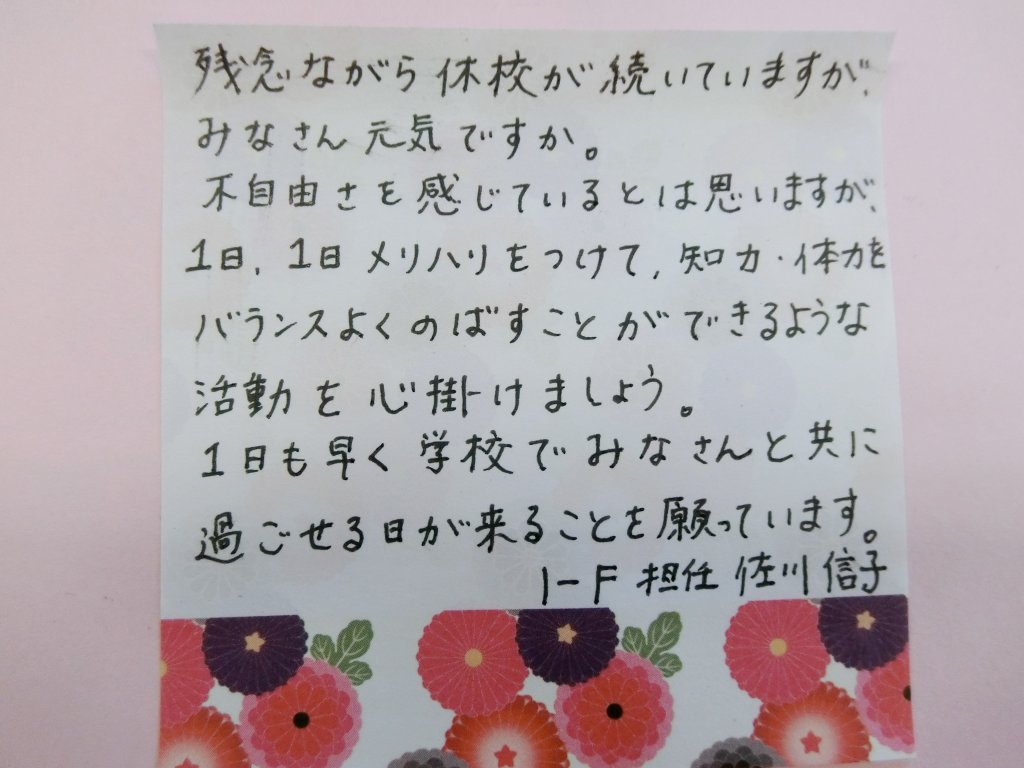 残念ながら休校が続いていますが、
みなさん元気ですか。
不自由さを感じているとは思いますが、
1日、1日メリハリをつけて、知力・体力を
バランスよくのばすことができるような
活動を心掛けましょう。
1日も早く学校でみなさんと共に
過ごせる日が来ることを願っています。
1-F 担任 佐川信子